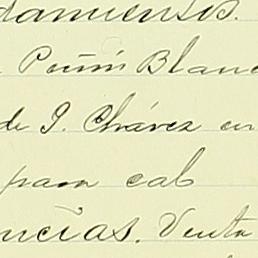 damiensis.
Peñón Blanc
de J. Chávez en
para cab
ncias. Venta